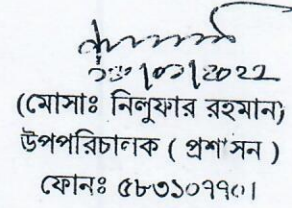 (মোসাঃ নিলুফার রহমান)
উপপরিচালক ( প্রশাসন )
ফোনঃ ৫৮৩১০৭৭০।